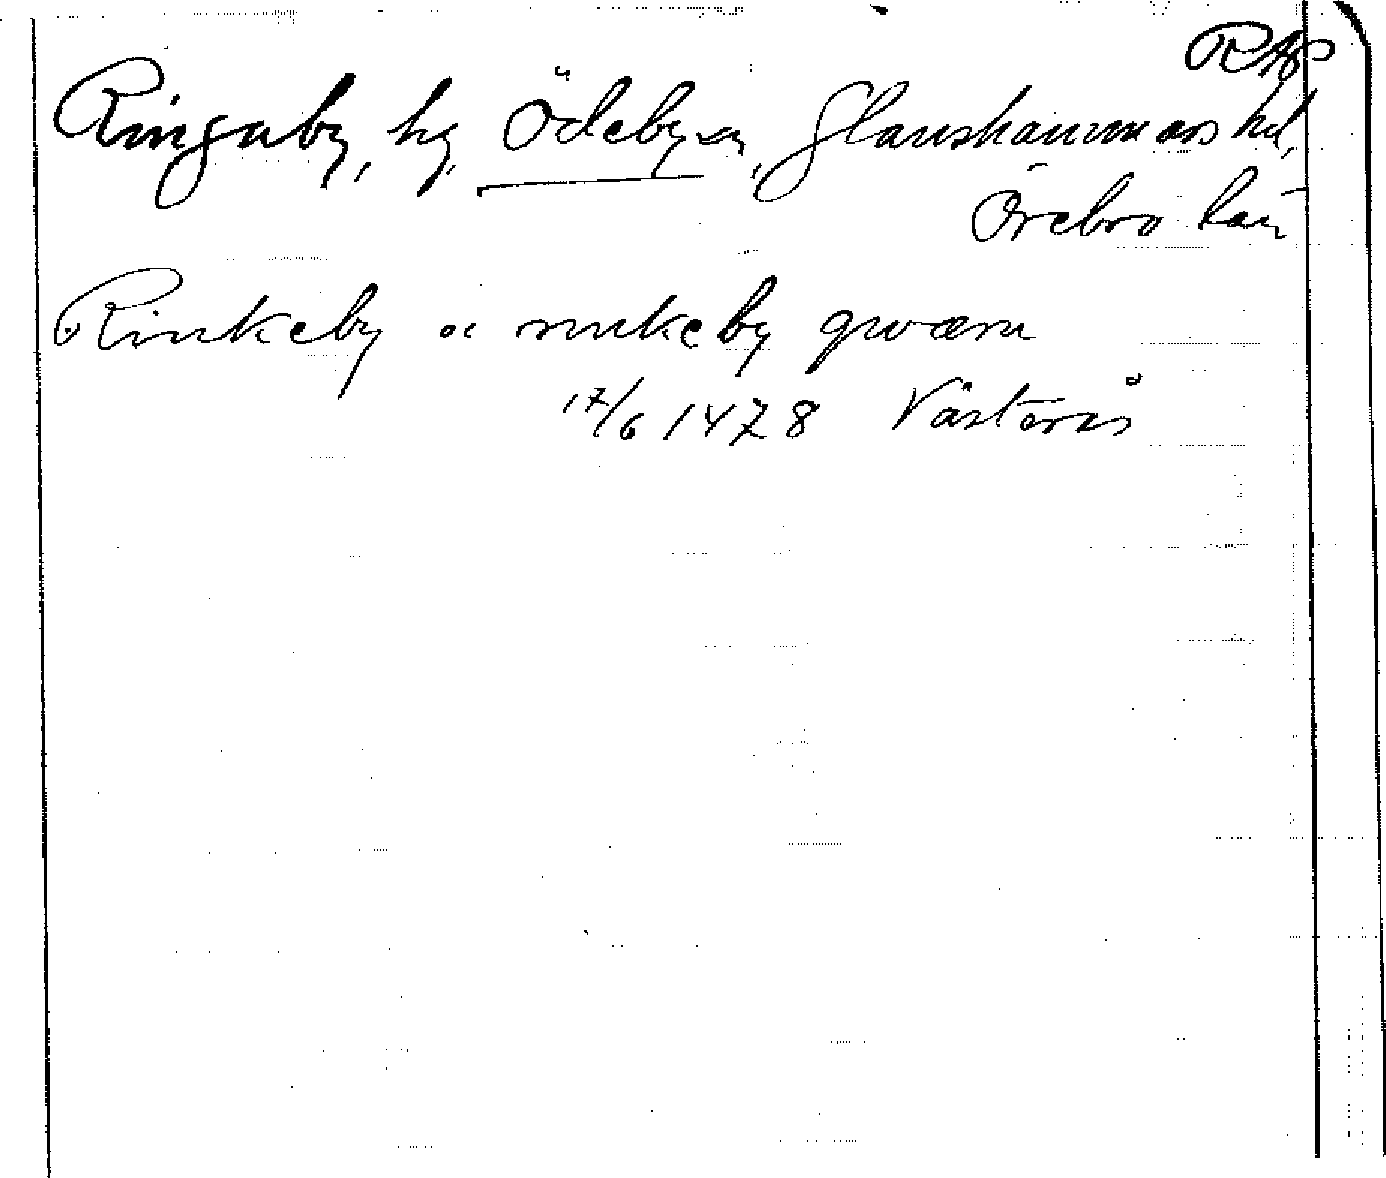 RAP
Ringaby, hg, Ödeby sn, Glanshammars hd,
Örebro län
Rinkeby oc rinkeby qwærn
17/6 1478 Västerås